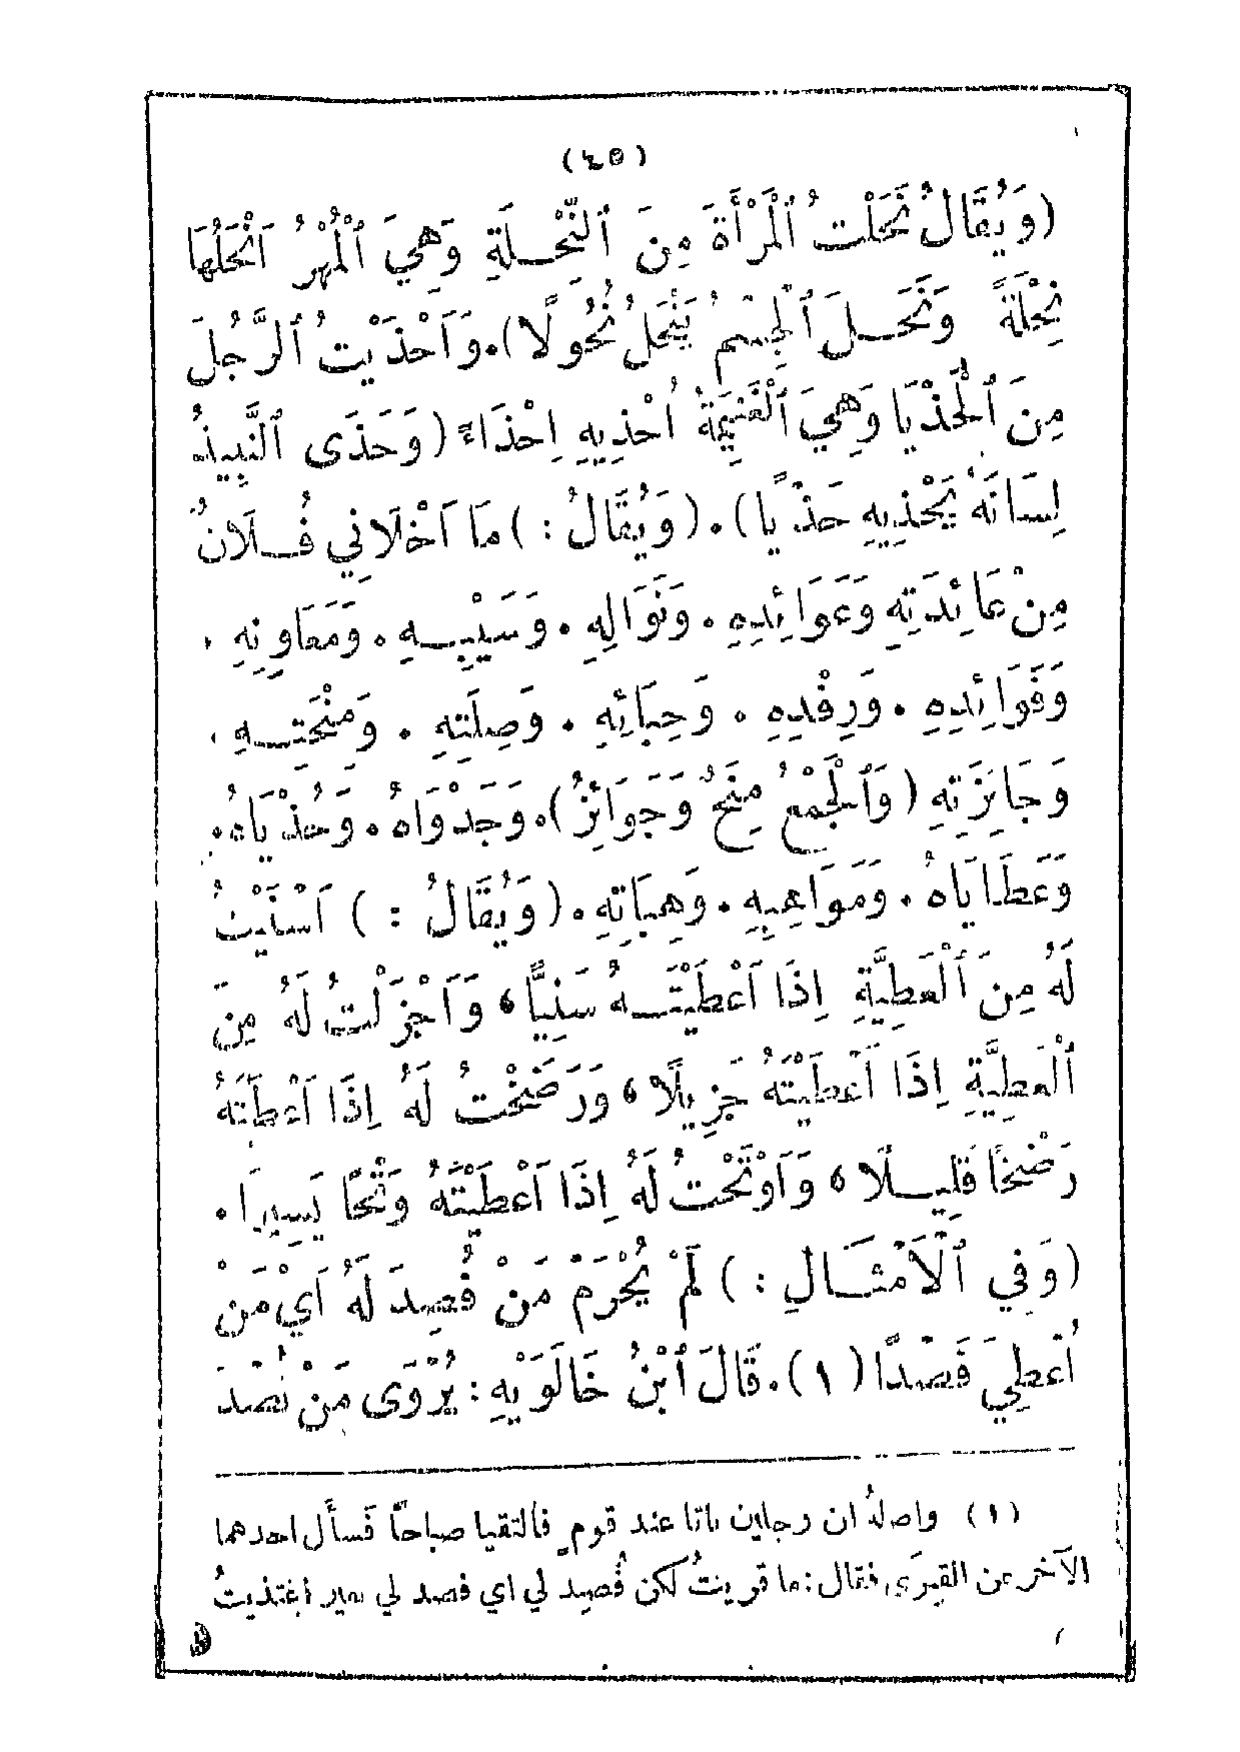 (٤٥)
(وَيُقَالُ نَحَلْتُ ٱلْمَرْأَةَ مِنَ ٱلنِّحْـلَةِ وَهِيَ ٱلْمَهْرُ اَنْحَلُهَا
نِحْلَةً وَنَحَـلَ ٱلْجِسْمُ يَنْحَلُ نُحُولًا). وَاَحْذَيْتُ ٱلرَّجُلَ
مِنَ ٱلْحُذْيَا وَهِيَ ٱلْغَنِيمَةُ اُحْذِيهِ اِحْذَاءً (وَحَذَى ٱلنَّبِيذُ
لِسَانَهُ يَحْذِيهِ حَذْيًا). (وَيُقَالُ:) مَا اَخْلَانِي فُـلَانٌ
مِنْ عَائِدَتِهِ وَعَوَائِدِهِ. وَنَوَالِهِ. وَسَيْبِـهِ. وَمَعَاوِنِهِ.
وَفَوَائِدِهِ. وَرِفْدِهِ. وَحِبَائِهِ. وَصِلَتِهِ. وَمِنْحَتِـهِ.
وَجَائِزَتِهِ (وَٱلْجَمْعُ مِنَحٌ وَجَوَائِزُ). وَجَدْوَاهُ. وَحُذْيَاهُ.
وَعَطَايَاهُ. وَمَوَاهِبِهِ. وَهِبَاتِهِ. (وَيُقَالُ:) اَسْنَيْتُ
لَهُ مِنَ ٱلْعَطِيَّةِ اِذَا اَعْطَيْتَـهُ سَنِيًّا، وَاَجْزَلْتُ لَهُ مِنَ
ٱلْعَطِيَّةِ اِذَا اَعْطَيْتَهُ جَزِيلًا، وَرَضَخْتُ لَهُ اِذَا اَعْطَيْتَهُ
رَضْخًا قَلِيـلًا، وَاَوْتَحْتُ لَهُ اِذَا اَعْطَيْتَهُ وَتْحًا يَسِيرًا.
(وَفِي ٱلْاَمْثَـالِ:) لَمْ يُحْرَمْ مَنْ فُصِدَ لَهُ اَيْ مَنْ
اُعْطِيَ فَصْدًا (١). قَالَ ٱبْنُ خَالَوَيْهِ: يُرْوَى مَنْ فُصْدَ
(١) واصلهُ ان رجلين باتا عند قومٍ فالتقيا صباحًا فسأَل احدهما
الآخر عن القِرَى فقال: ما قريتُ لكن فُصِد لي اي فصد لي بعير اغتذيتُ